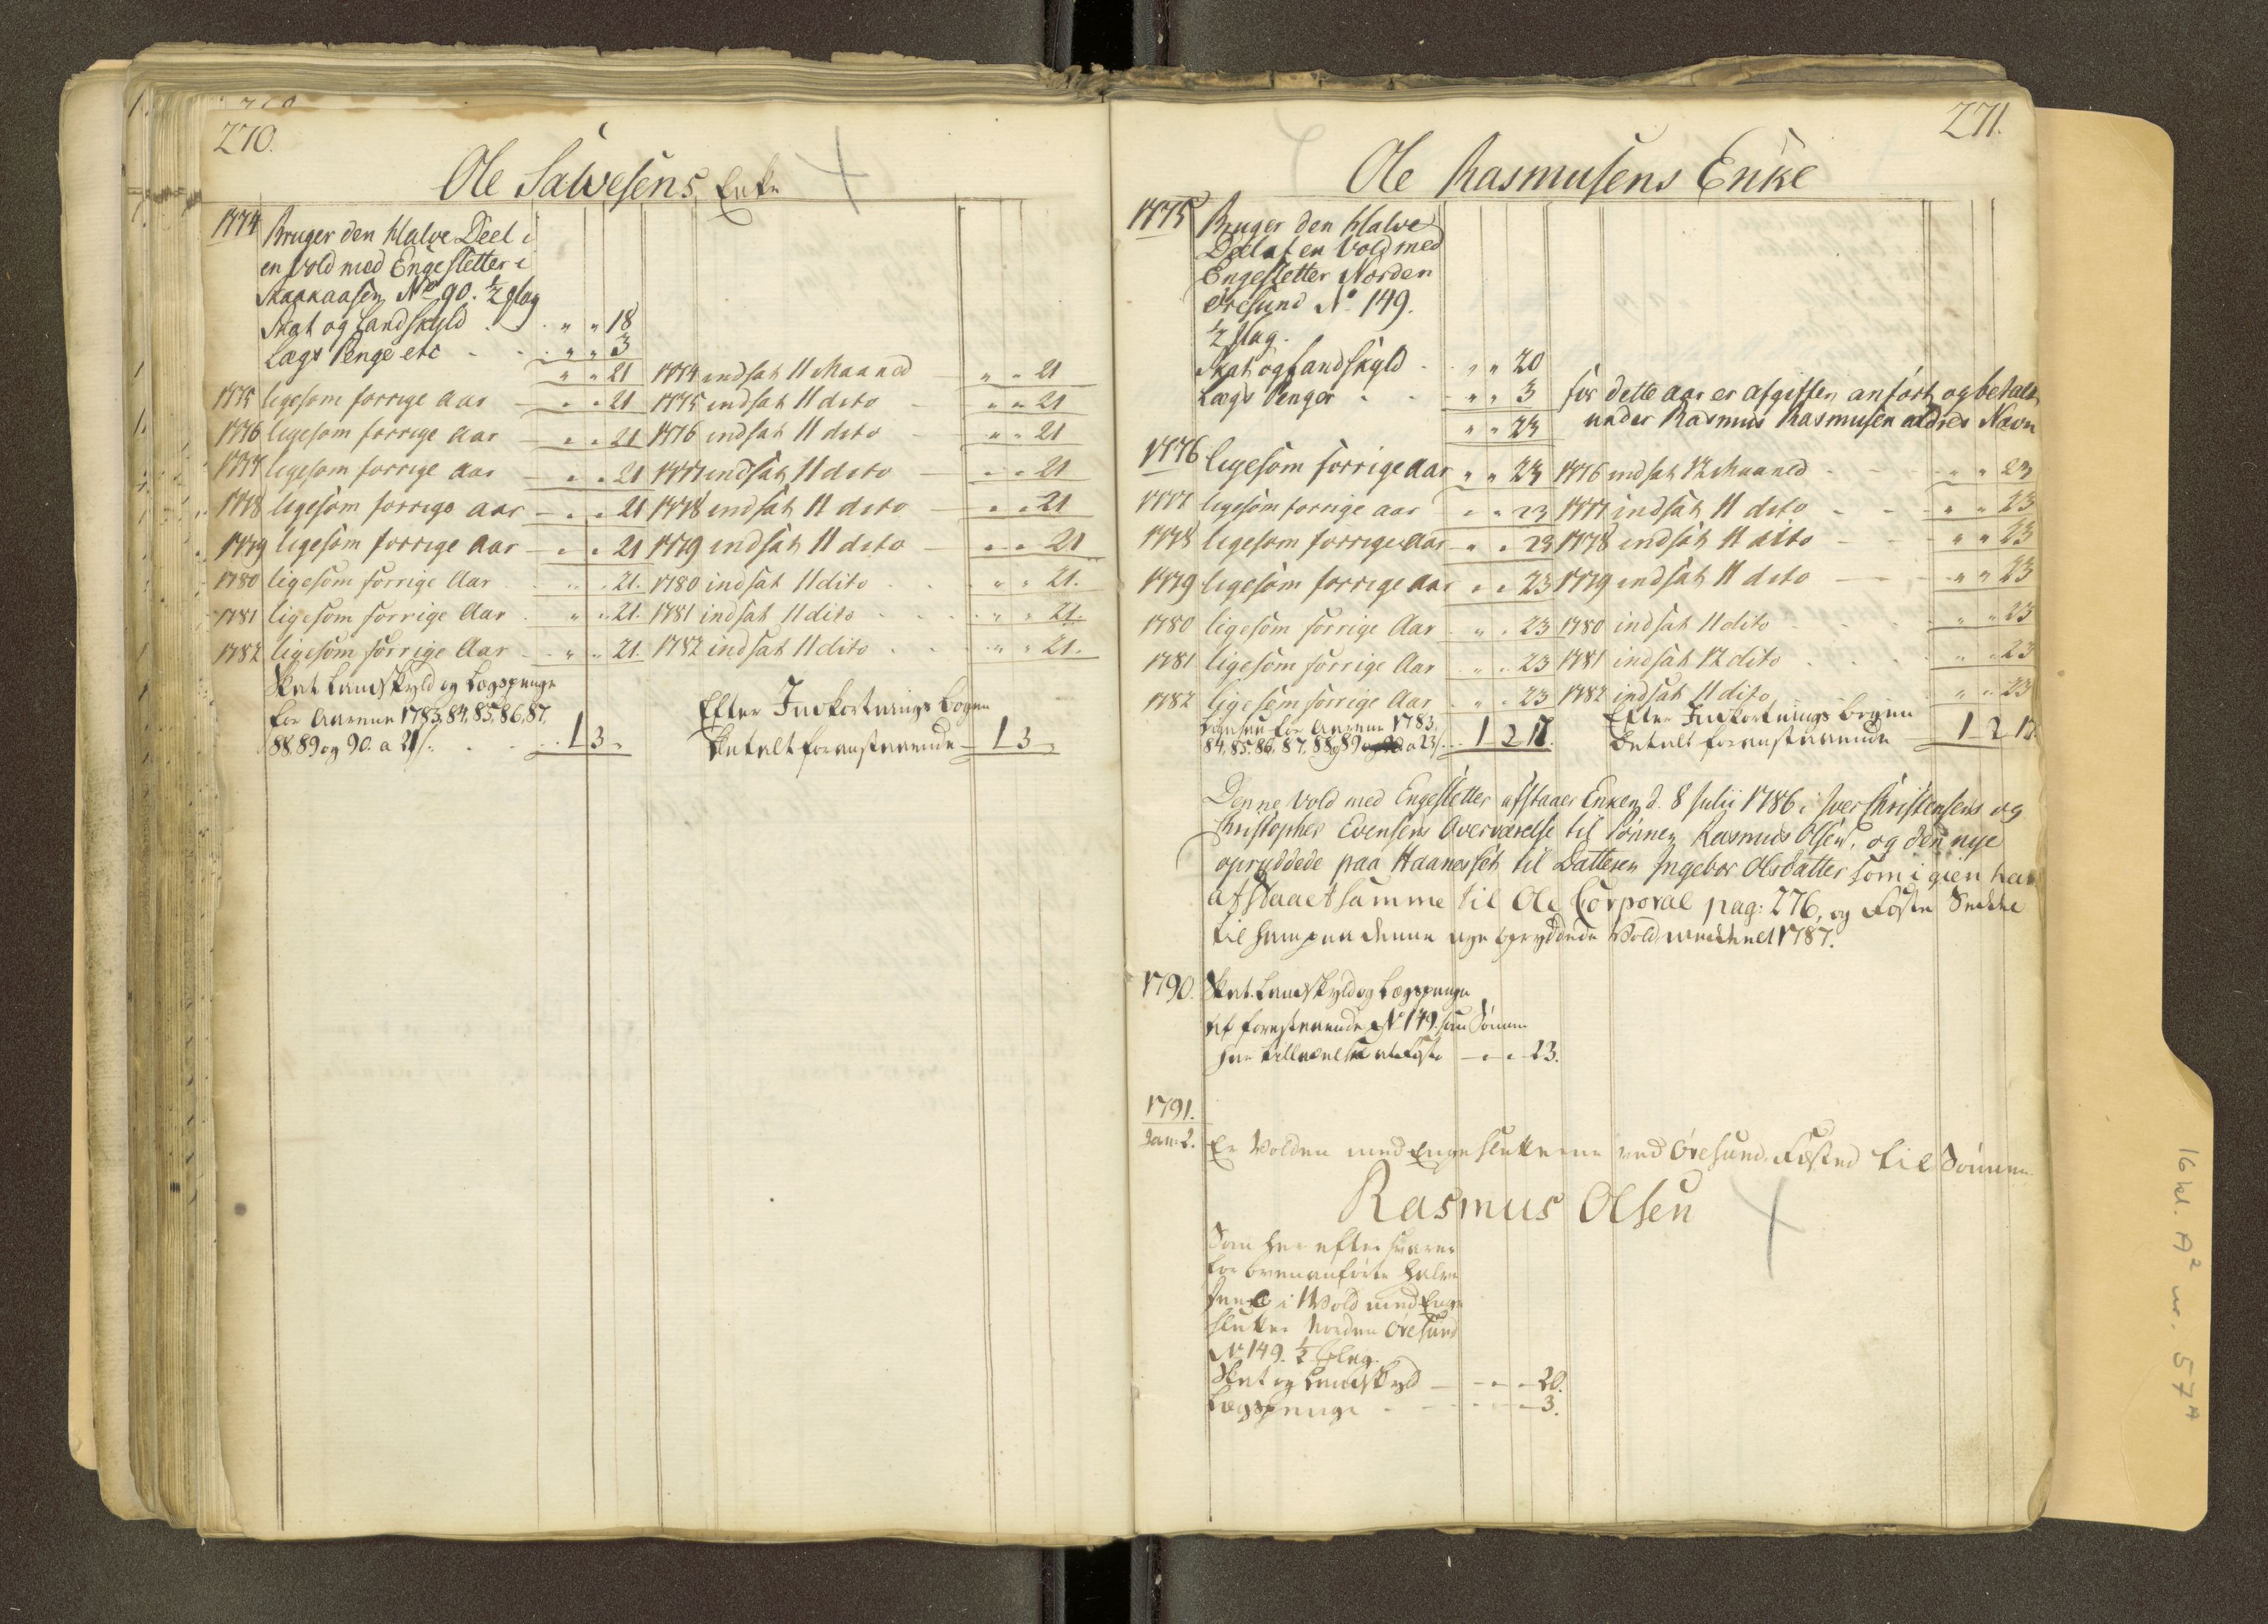 270.
Ole Salvesens Enke
1774 Bruger den Halve Deel i
en Vold med Engesletter i
Skaakaasen No 90. ½ slag
Skat og Landskyld . . " " 18
Lægs Penge etc - - " " 3
" " 21 1774 indsat 11 Maaned - " " 21
1775 ligesom forrige Aar - " " 21 1775 indsat 11 dito - " " 21
1776 ligesom forrige Aar - " " 21 1776 indsat 11 dito - " " 21
1777 ligesom forrige Aar - " " 21 1777 indsat 11 dito - " " 21
1778 ligesom forrige Aar - " " 21 1778 indsat 11 dito - " " 21
1779 ligesom forrige Aar - " " 21 1779 indsat 11 dito - " " 21
1780 ligesom forrige Aar . " " 21. 1780 indsat 11 dito . . " " 21.
1781 ligesom forrige Aar . " " 21. 1781 indsat 11 dito . . " " 21.
1782 ligesom forrige Aar . " " 21. 1782 indsat 11 dito . . " " 21.
Skat Landskyld og Lægspenge
for Aarene 1783, 84, 85, 86, 87,
88, 89 og 90. a 21 s. . . 1 3 "
Efter Indkortnings Bogen
Betalt foranstaaende - 1 3 "
271.
Ole Rasmusens Enke
1775 Bruger den Halve
Deel af en Vold med
Engesletter Norden
Øresund No. 149.
½ slag.
Skat og Landskyld . " " 20
Lægs Penger . . " " 3 for dette Aar er afgiften anført og betalt
" " 23 under Rasmus Rasmusen ældres Navn
1776 ligesom forrige Aar " " 23 1776 indsat 12 Maaned - " " 23
1777 ligesom forrige aar " " 23 1777 indsat 11 dito - - " " 23
1778 ligesom forrige Aar " " 23 1778 indsat 11 dito - - " " 23
1779 ligesom forrige Aar " " 23 1779 indsat 11 dito - - " " 23
1780 ligesom forrige Aar . " " 23 1780 indsat 11 dito . . " " 23
1781 ligesom forrige Aar . " " 23 1781 indsat 12 dito . . " " 23
1782 ligesom forrige Aar . " " 23 1782 indsat 11 dito . . " " 23
Ligesaa for Aarene 1783,
84, 85, 86, 87, 88 og 89 a 23 s. . 1 2 17.
Efter Indkortnings Bogen
Betalt foranstaaende 1 2 17.
Denne Vold med Engesletter afstaaer Enken d. 8 Julii 1786 i Iver Christensens og
Christopher Evensens Overværelse til Sønnen Rasmus Olsen, og den nye
opryddede paa Haanesset til Datteren Ingebor Olsdatter som igien har
afstaaet samme til Ole Corporal pag: 276, og Fæste Seddel
til ham paa denne nye opryddede Vold meddeelt 1787.
1790. Skat Landskyld og Lægspenge
af forestaaende No 149. som Sønnen
har tilladelse at Fæste - " " 23.
1791.
Jan: 2. Er Volden med Engesletterne ved Øresund Fæsted til Sønnen
Rasmus Olsen
Som her efter svarer
for ovenanførte halve
Deel i 1 Vold med Enge
sletter Norden Øresund
No 149. ½ slag.
Skat og Landskyld - " " 20.
Lægspenge . - " " 3.
16 kl. A² nr. 57ᴬ